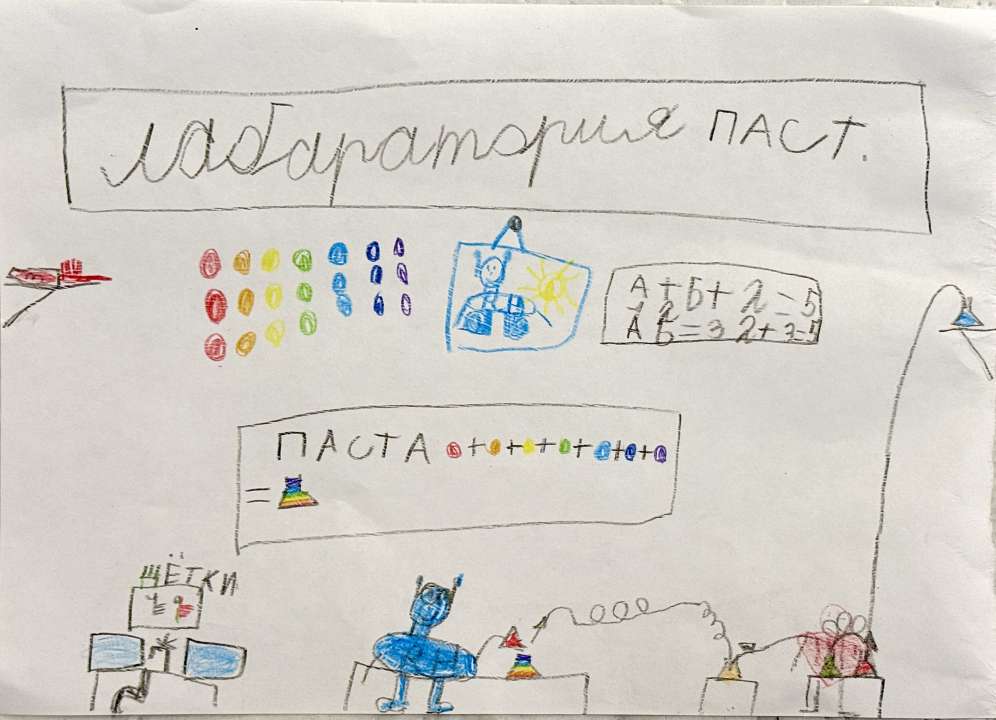 лабаратория ПАСТ.
А+Б+2=5
А Б=3 2+3=5
ПАСТА + + + + + +
=
ЩЁТКИ